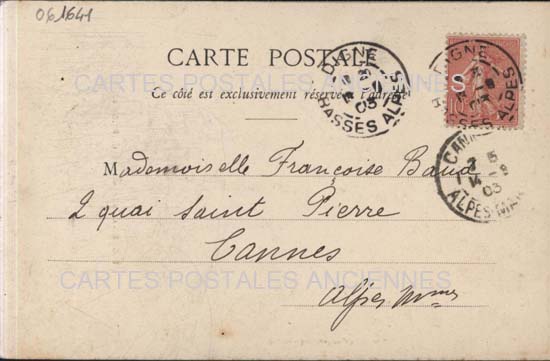 061641
CARTE POSTALE
Ce côté est exclusivement réservé à l'adresse
DIGNE
BASSES ALPES
03
DIGNE
ALPES
CANNES
14 - 8
03
ALPES-MAR
Mademoiselle Françoise Baud
2 quai Saint Pierre
Cannes
Alpes Mmes
CARTES POSTALES ANCIENNES
CARTES POSTALES ANCIENNES